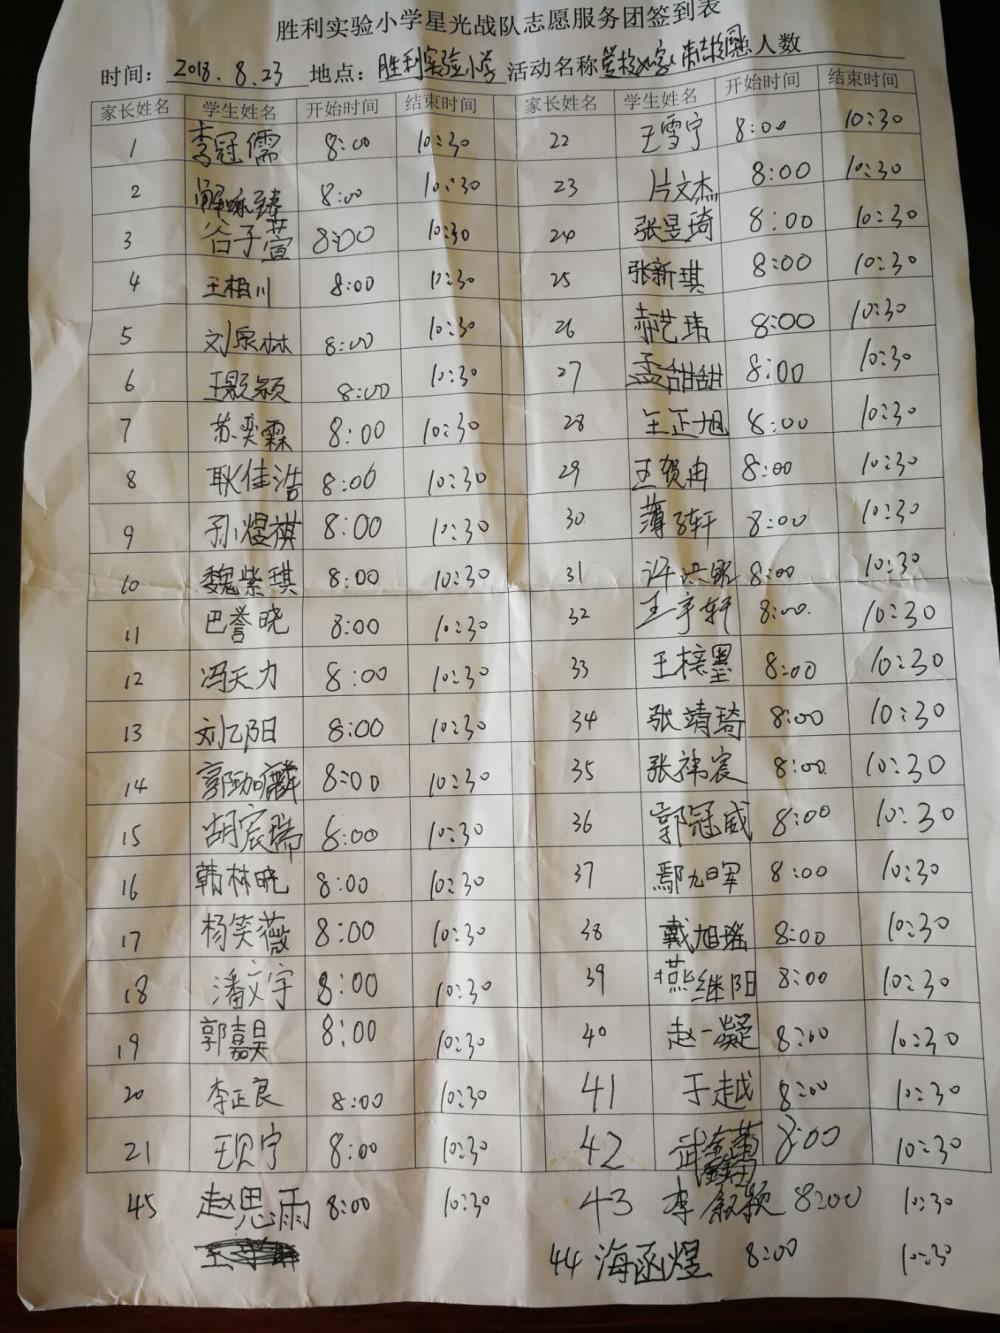 胜利实验小学星光战队志愿服务团签到表
时间：2018.8.23 地点：胜利实验小学 活动名称 人数
家长姓名 学生姓名 开始时间 结束时间 家长姓名 学生姓名 开始时间 结束时间
1 李冠儒 8:00 10:30 22 王雪宁 8:00 10:30
2 解咏臻 8:00 10:30 23 片文杰 8:00 10:30
3 谷子萱 8:00 10:30 24 张昱琦 8:00 10:30
4 王相川 8:00 10:30 25 张新琪 8:00 10:30
5 刘泉林 8:00 10:30 26 郝艺玮 8:00 10:30
6 8:00 10:30 27 孟甜甜 8:00 10:30
7 苏奕霖 8:00 10:30 28 王正旭 8:00 10:30
8 耿佳浩 8:00 10:30 29 王贺冉 8:00 10:30
9 孙煜祺 8:00 10:30 30 薄子轩 8:00 10:30
10 魏紫琪 8:00 10:30 31 8:00 10:30
11 巴誉晓 8:00 10:30 32 王宇轩 8:00 10:30
12 冯天力 8:00 10:30 33 王梓墨 8:00 10:30
13 刘亿阳 8:00 10:30 34 张靖琦 8:00 10:30
14 8:00 10:30 35 张祎宸 8:00 10:30
15 胡宸瑞 8:00 10:30 36 郭冠威 8:00 10:30
16 韩林晓 8:00 10:30 37 鄢旭军 8:00 10:30
17 杨笑薇 8:00 10:30 38 戴旭瑶 8:00 10:30
18 潘文宇 8:00 10:30 39 燕继阳 8:00 10:30
19 郭嘉昊 8:00 10:30 40 赵一凝 8:00 10:30
20 李正良 8:00 10:30 41 于越 8:00 10:30
21 王贝宁 8:00 10:30 42 8:00 10:30
45 赵思雨 8:00 10:30 43 李叙颖 8:00 10:30
44 海函煜 8:00 10:30